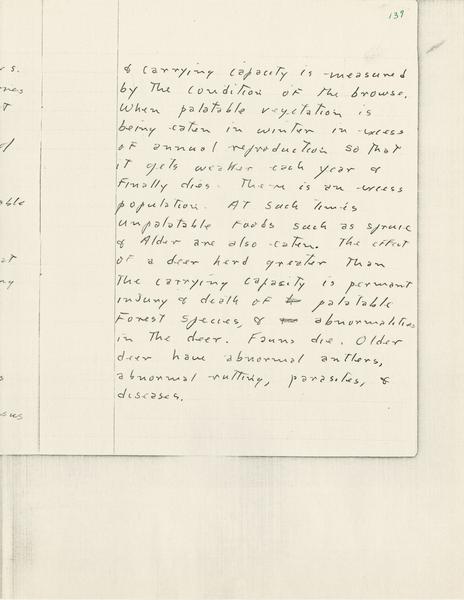 139
& carrying capacity is measured
by the condition of the browse.
When palatable vegetation is
being eaten in winter in excess
of annual reproduction so that
it gets weaker each year &
finally dies. There is an excess
population. At such times
unpalatable foods such as spruce
& Alder are also eaten. The effect
of a deer herd greater than
the carrying capacity is permant
injury & death of palatable
Forest species, & abnormalities
in the deer. Fauns die. Older
deer have abnormal antlers,
abnormal rutting, parasites, &
diseases.